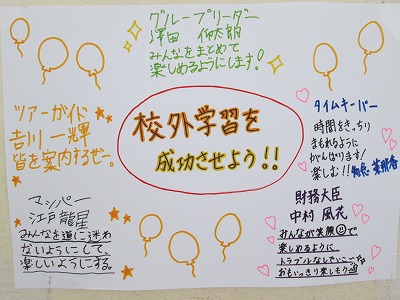 グループリーダー
澤田
みんなをまとめて
楽しめるようにします!
ツアーガイド
吉川 一輝
皆を案内するぜー。
校外学習を
成功させよう!!
タイムキーパー
時間をきっちり
まもれるように
がんばります!
楽しむ!!
マッパー
江戸龍星
みんなを道に迷わ
ないようにして、
楽しいようにする。
財務大臣
中村 風花
みんなが笑顔で
楽しめるように
トラブルなしでいこー
おもいっきり楽しもう